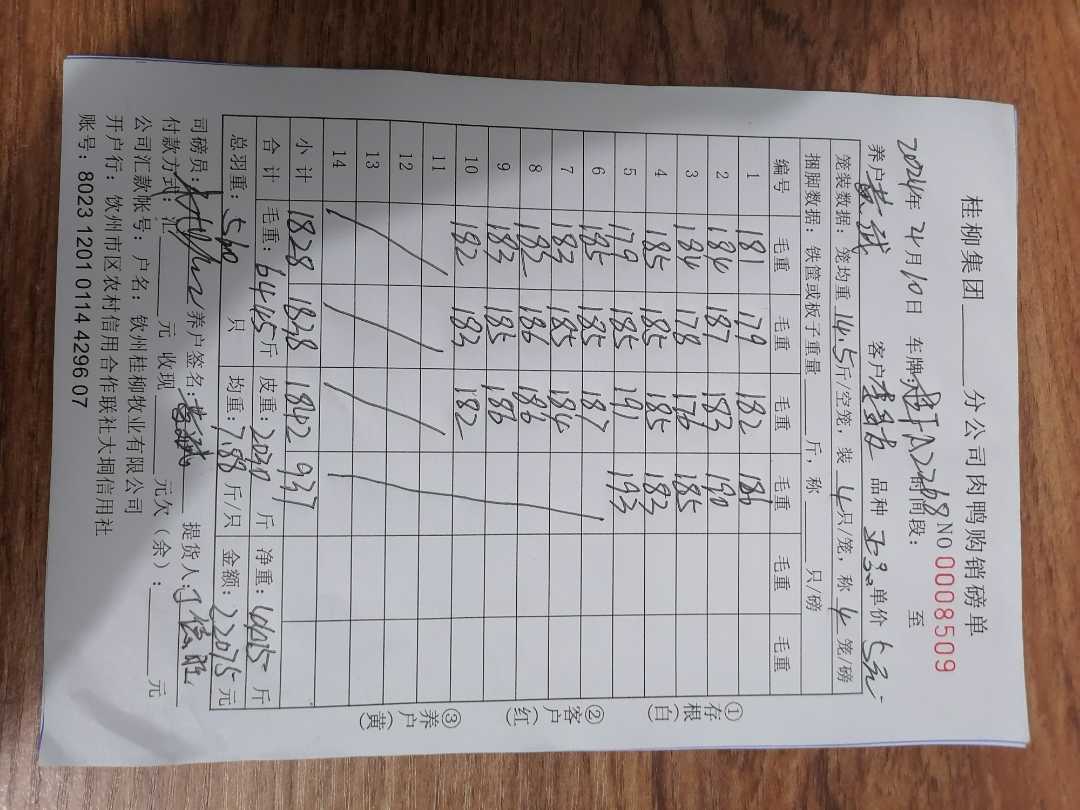 桂柳集团____分公司肉鸭购销磅单
2024年 4月10日 车牌: NO 0008509 时间段: 至
养户 黄斌 客户 品种 单价 5元
笼装数据: 笼均重 14.5斤/空笼, 装 4只/笼, 称 4笼/磅
捆脚数据: 铁筐或板子重量____斤, 称____只/磅
编号 毛重 毛重 毛重 毛重 毛重 毛重
1 181 179 182 186
2 184 187 183 190
3 184 178 176 185
4 185 185 185 183
5 179 185 191 193
6 185 185 187
7 183 185 184
8 182 186 186
9 183 185 186
10 182 183 182
11
12
13
14
小计 1828 1838 1842 937
合计 毛重: 6445斤 皮重: 2030斤 净重: 4415斤
总羽重: 560 只 均重: 7.88 斤/只 金额: 22075元
司磅员: 养户签名: 黄斌 提货人: 丁信胜
付款方式: 汇____元 收现____元欠(余): ____元
公司汇款帐号: 户名: 钦州桂柳牧业有限公司
开户行: 钦州市区农村信用合作联社大垌信用社
账号: 8023 1201 0114 4296 07
①存根(白)
②客户(红)
③养户(黄)